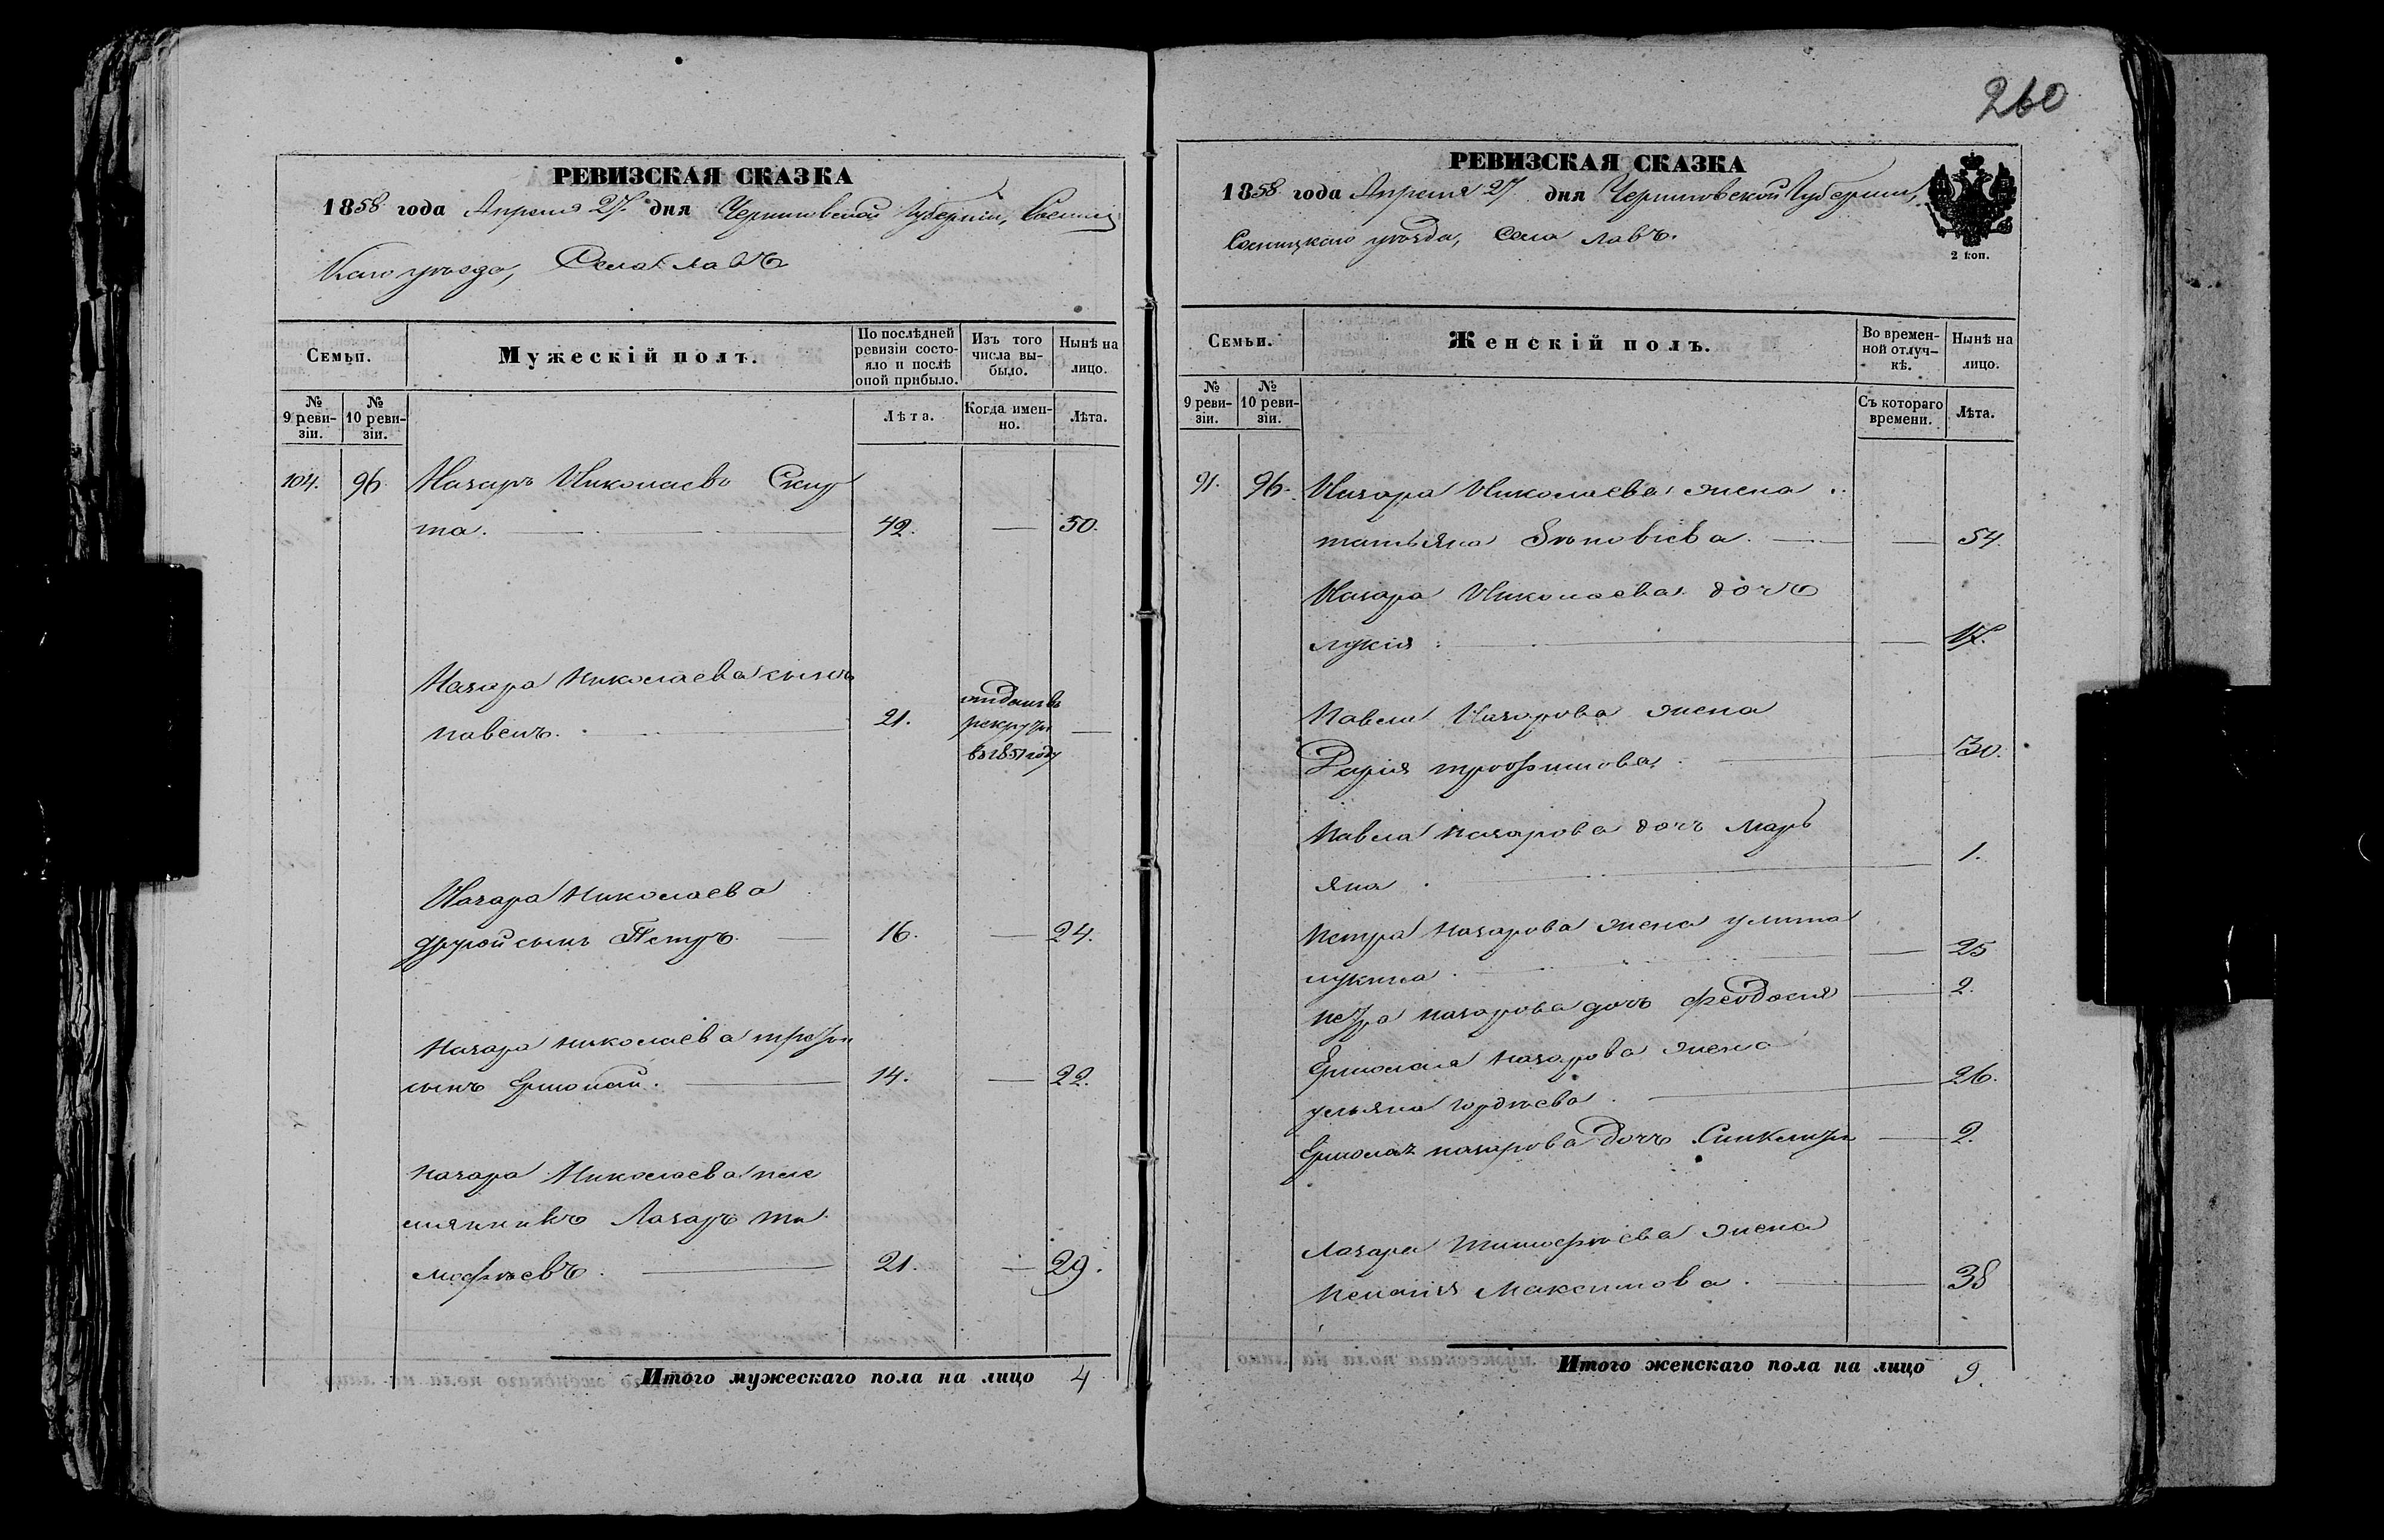 260
РЕВИЗСКАЯ СКАЗКА
1858 года Апреля 27 дня Черниговской Губернии, Сосниц
каго уѣзда, Села Лавъ
Семьи.
Мужескій полъ.
По послѣдней ревизіи состояло и послѣ оной прибыло.
Изъ того числа выбыло.
Нынѣ на лицо.
№ 9 ревизіи.
№ 10 ревизіи.
Лѣта.
Когда именно.
Лѣта.
104. 96. Назаръ Николаевъ Скид
та. 42. — 50.
Назара Николаева сынъ
Павелъ. 21. отданъ въ рекруты в 1851 году —
Назара Николаева
другой сынъ Петръ. 16. — 24.
Назара Николаева третій
сынъ Ермолай. 14. — 22.
Назара Николаева пле
мянникъ Лазарь Ти
мофѣевъ. 21. — 29.
Итого мужескаго пола на лицо 4
РЕВИЗСКАЯ СКАЗКА
1858 года Апреля 27 дня Черниговской Губернии,
Сосницкаго уѣзда, Села Лавъ.
2 коп.
Семьи.
Женскій полъ.
Во временной отлучкѣ.
Нынѣ на лицо.
№ 9 ревизіи.
№ 10 ревизіи.
Съ котораго времени.
Лѣта.
91. 96. Назара Николаева жена
татьяна — 54.
Назара Николаева дочь
лукія — 17.
Павла Назарова жена
Дарія трофимова. — 30.
Павла Назарова дочь Марь
яна 1.
Петра Назарова жена улита
лукина — 25
петра назарова дочь феодосия — 2.
Ермолая Назарова жена
ульяна гордѣева. 26.
Ермолая назарова дочь — 2.
Лазаря Тимофѣева жена
Пелагія Максимова. 38
Итого женскаго пола на лицо 9.